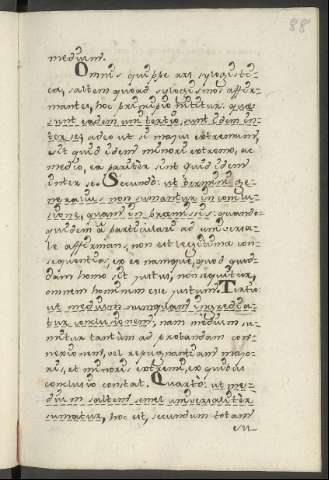 88
medium.
Omnis quippe ars sylogisti-
ca, saltem quoad sylogismos affir-
mantes, hoc principio nititur: quæ
sunt eadem uni tertio, sunt idem in-
ter se; adeo ut si majus extremum,
sit quid idem minori extremo, ac
medio, ea pariter sint quid idem
inter se. Secundo: ut termini ge-
neralius non sumantur in conclu-
sione, quam in præmissis: quando-
quidem à particulari ad universa-
le affirman, non est legitima con-
sequentia; ex eo namque, quod quo-
dam homo sit justus, non sequitur,
omnem hominem esse justum. Tertio:
ut medium numquam ingredia-
tur conclusionem, nam medium su-
mitur tantum ad probandam con-
nexionem, vel repugnantiam majo-
ris, et minoris extremi, ex quibus
conclusio constat. Quarto: ut me-
dium saltem semel universaliter
sumatur, hoc est, secundum totam
su-